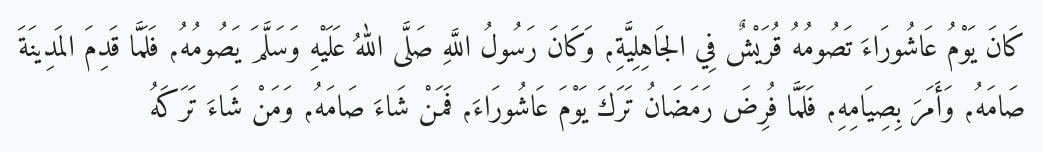 كَانَ يَوْمُ عَاشُورَاءَ تَصُومُهُ قُرَيْشٌ فِي الجَاهِلِيَّةِ، وَكَانَ رَسُولُ اللَّهِ صَلَّى اللهُ عَلَيْهِ وَسَلَّمَ يَصُومُهُ، فَلَمَّا قَدِمَ المَدِينَةَ
صَامَهُ، وَأَمَرَ بِصِيَامِهِ، فَلَمَّا فُرِضَ رَمَضَانُ تَرَكَ يَوْمَ عَاشُورَاءَ، فَمَنْ شَاءَ صَامَهُ، وَمَنْ شَاءَ تَرَكَهُ